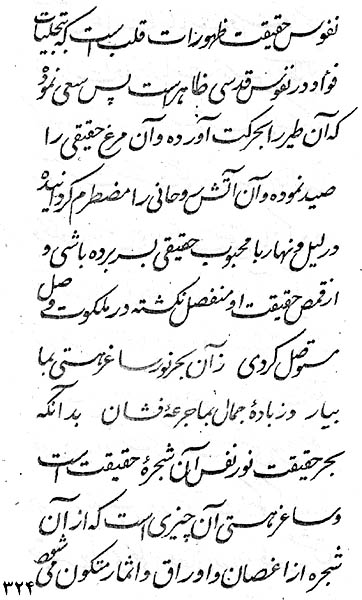 نفوس حقیقت ظهورات قلب است که تجلیات
فواد در نفوس قدسی ظاهر است پس سعی نموده
که آن طیر را بحرکت آورده و آن مرغ حقیقی را
صید نموده و آن آتش روحانی را مضطرم گردانیده
در لیل و نهار با محبوب حقیقی بسر برده باشی و
از قمص حقیقت او منفصل نگشته در ملکوت وصل
متوصل گردی ز آن بحر نور ساغر هستی بما
بیار در ز بادهٔ جمال بما جرعهٔ فشان بدانکه
بحر حقیقت نور نفس آن شجرهٔ حقیقت است
و ساغر هستی آن چیزی است که از آن
شجره از اغصان و اوراق و اثمار متکون می شود
۳۲۴